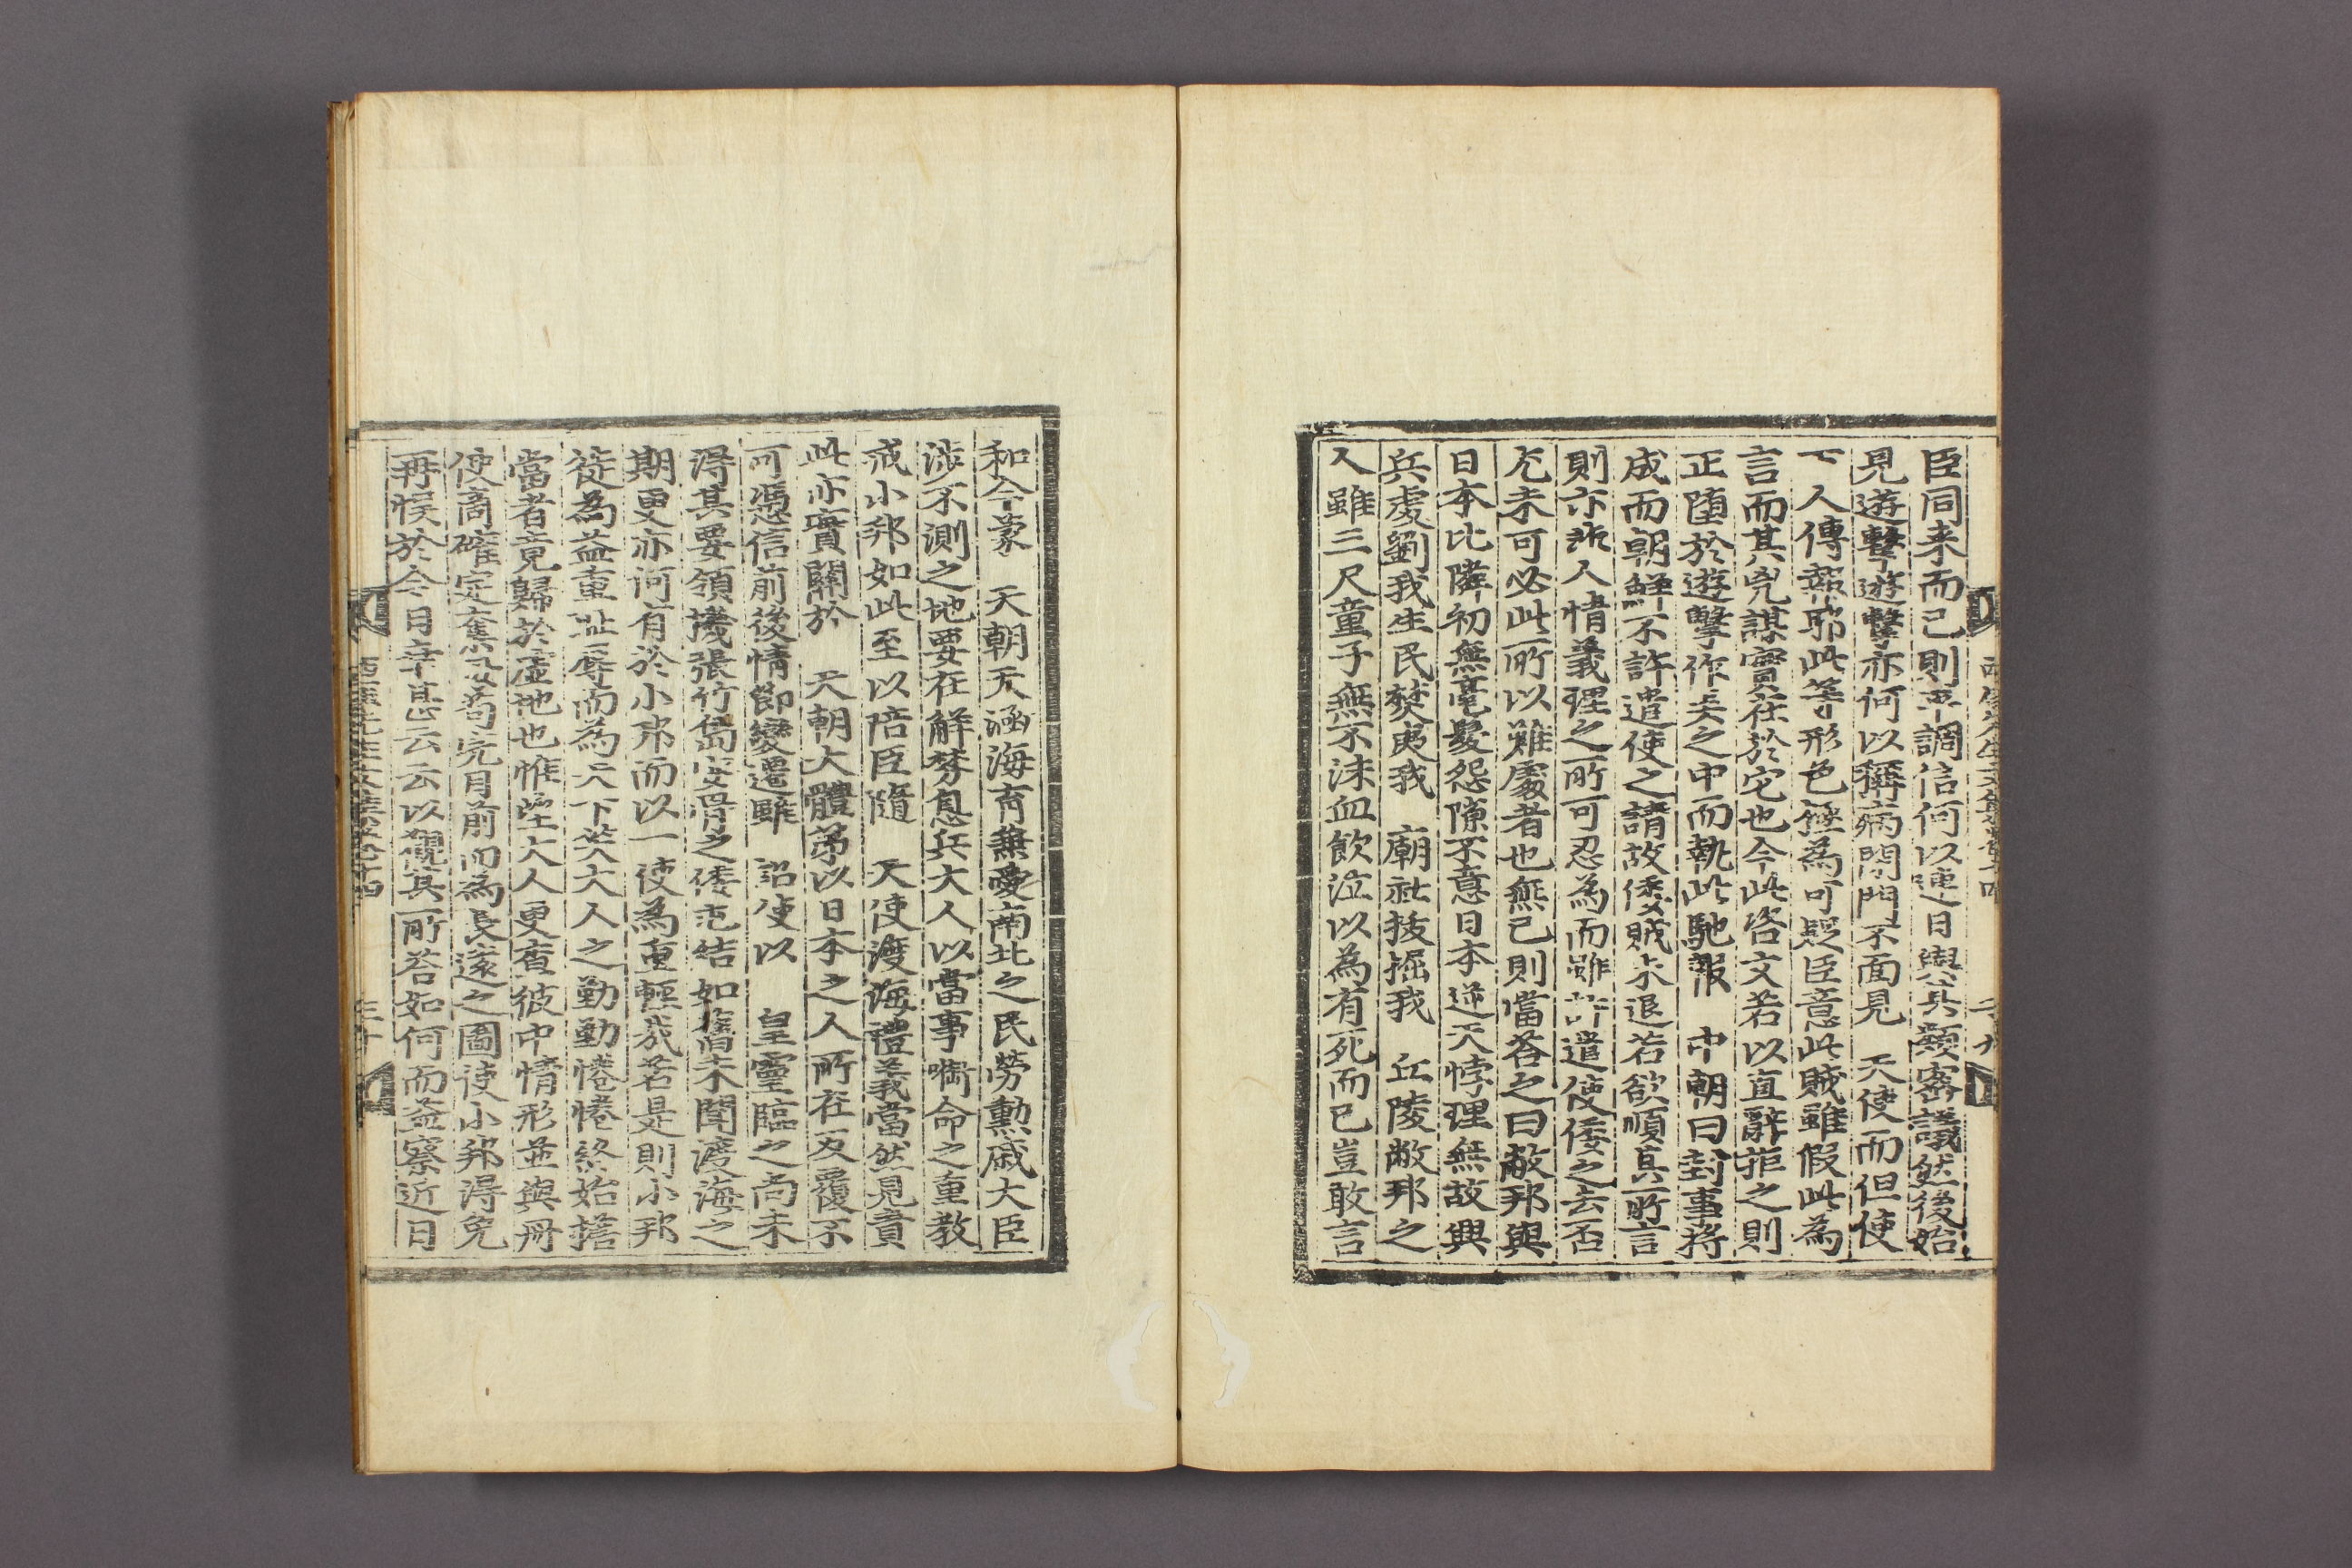 臣同来而已則平調信何以連日與其類密議然後始
見遊擊遊擊亦何以稱病閉門不面見　天使而但使
下人傳報耶此等形色極為可疑臣意此賊雖假此為
言而其兇謀實在於它也今此咨文若以直辭拒之則
正墮於遊擊作夫之中而執此馳報　中朝曰封事將
成而朝鮮不許遣使之請故倭賊未退若欲順其所言
則亦非人情義理之所可忍為而雖許遣使倭之去否
尤未可必此所以難處者也無已則當荅之曰敝邦與
日本比隣初無毫髮怨隙不意日本逆天悖理無故興
兵虔劉我生民焚夷我　廟社拔掘我　丘陵敝邦之
人雖三尺童子無不沬血飲泣以為有死而已豈敢言
和今蒙　天朝天涵海育兼愛南北之民勞勳戚大臣
涉不測之地要在解禁息兵大人以當事嚙命之重教
戒小邦如此至以陪臣隨　天使渡海禮義當然見責
此亦實關於　天朝大體第以日本之人所在反覆不
可憑信前後情節變遷雖　詔使以　皇靈臨之尚未
得其要領機張竹島安骨之倭屯結如舊未聞渡海之
期更亦何有於小邦而以一使為重輕哉若是則小邦
徒為益重耻辱而為天下笑大人之勤勤惓惓終始擔
當者竟歸於虛地也惟望大人更査彼中情形並與冊
使商確定奪於若完月前而為長遠之圖使小邦得免
再悞於今日幸甚云云以觀其所荅如何而益察近日
西厓先生文集卷十四　二十九
西厓先生文集卷十四　三十